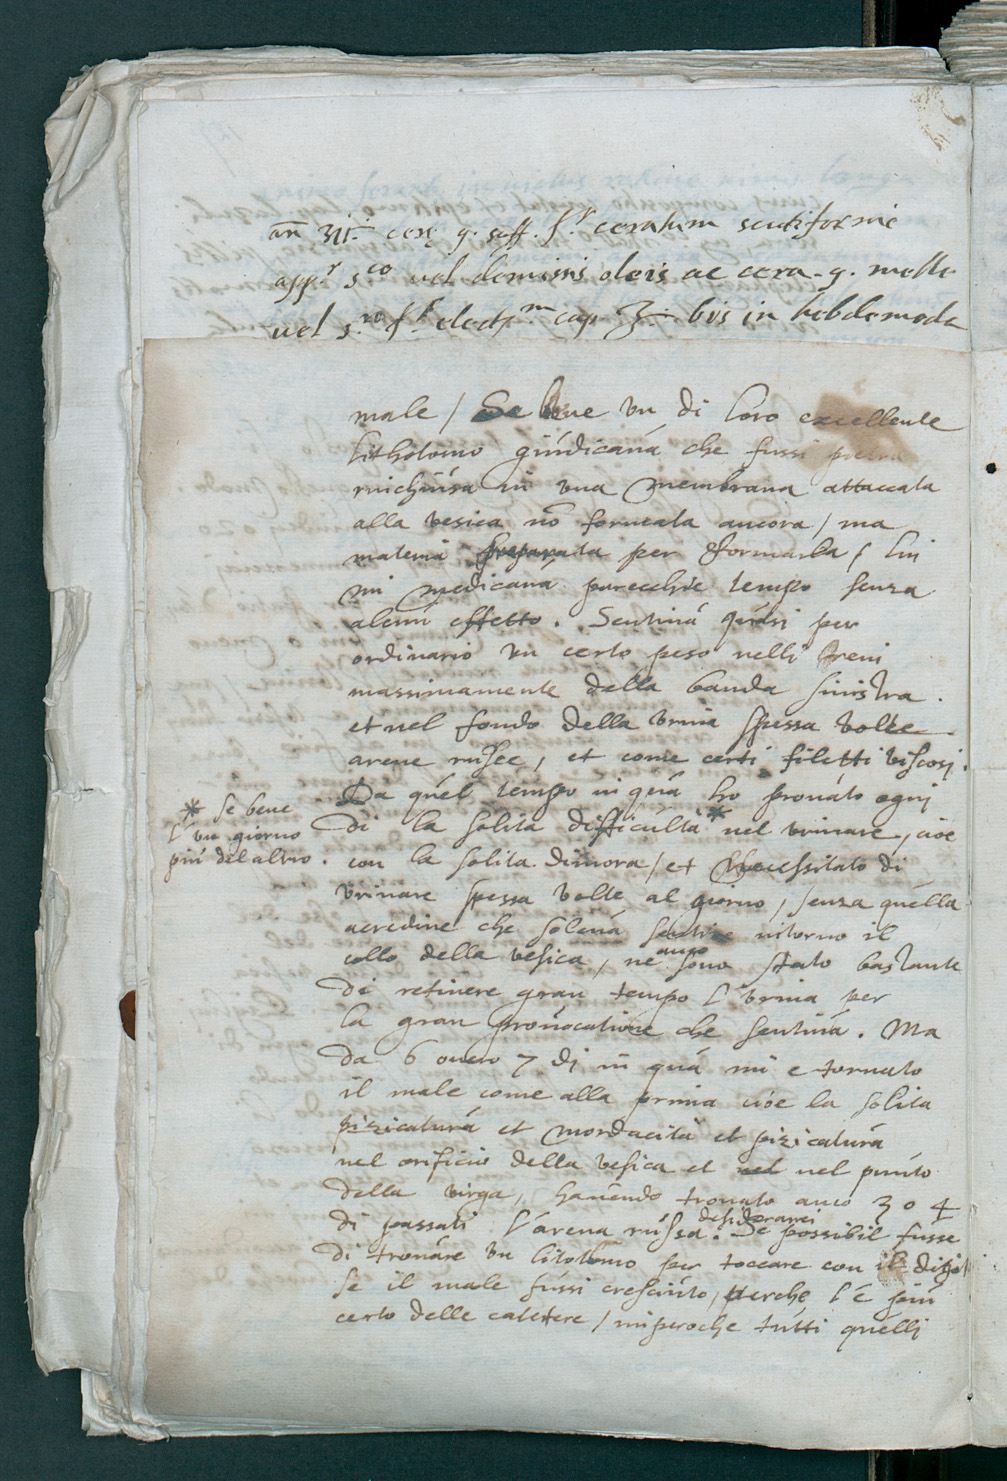 cerq. q. suff. f. ceratum scutiforme
vel demissis oleis ac cera. q. molle
vel elect.m cap ʒ bis in hebdomada
male / Se bene un di loro excellente
lithotomo giudicaua che fussi pietra
rinchiusa in una membrana attaccata
alla vesica nō formata ancora / ma
materia preparata per formarla / lui
mi medicaua parecchie tempo senza
alcun effetto. Sentiua quasi per
ordinario un certo peso nelli reni
massimamente della banda sinistra.
et nel fondo della urina spessa volte
arene russe, et come certi filetti viscosi.
Da quel tempo in qua ho prouato ogni
* se bene
l'un giorno
piu del altro.
di la solita difficulta * nel urinare, cioe
con la solita dimora / et necessitato di
urinare spessa volte al giorno, senza quella
acredine che soleua sentire intorno il
collo della vesica, ne anco sono stato bastante
di retinere gran tempo l'urina per
la gran prouocatione che sentiua. Ma
da 6 ouero 7 di in qua mi e tornato
il male come alla prima cioe la solita
pizicatura et mordacita et pizicatura
nel orificio della vesica et nel nel punto
della virga, hauendo trouato anco 3 o 4
di passati l'arena russa. desiderarei Se possibil fusse
di trouare un litotomo per toccare con il digit
se il male fussi cresciuto, perche l'é piu
certo delle catetere / imperoche tutti quelli